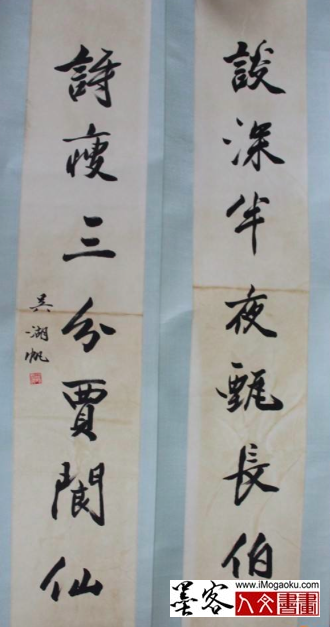 談深半夜甄長伯
詩瘦三分賈閬仙
吳湖帆
墨客
www.iMogaoku.com
人文書畫